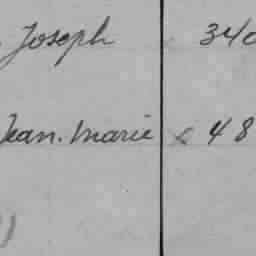 Joseph 340
Jean-Marie 48